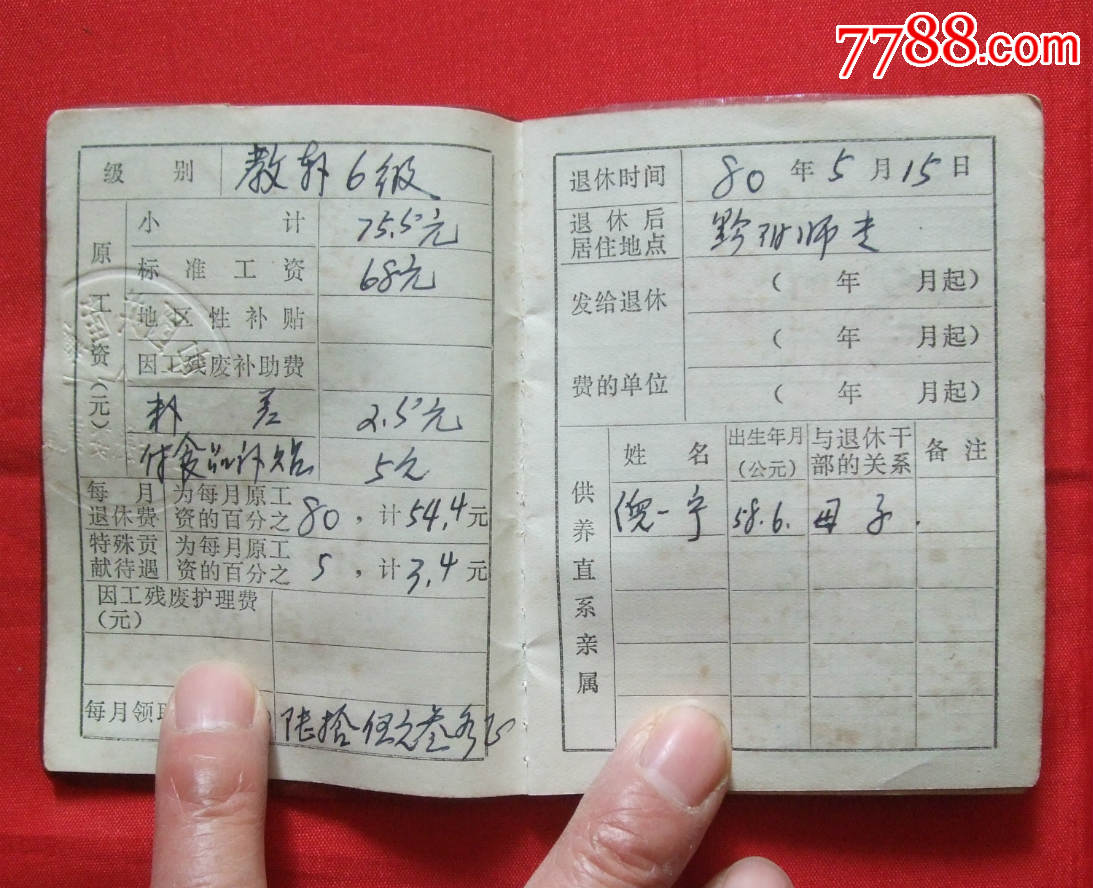 7788.com
级别 教师6级
原工资(元)
小计 75.5元
标准工资 68元
地区性补贴
因工残废补助费
补差 2.5元
付食品补贴 5元
每月退休费 为每月原工资的百分之80,计54.4元
特殊贡献待遇 为每月原工资的百分之5,计3.4元
因工残废护理费(元)
每月领 陆拾伍元叁角正
退休时间 80年5月15日
退休后居住地点 黔阳师专
发给退休费的单位
( 年 月起)
( 年 月起)
( 年 月起)
供养直系亲属
姓名 出生年月(公元) 与退休干部的关系 备注
倪一宁 58.6. 母子.